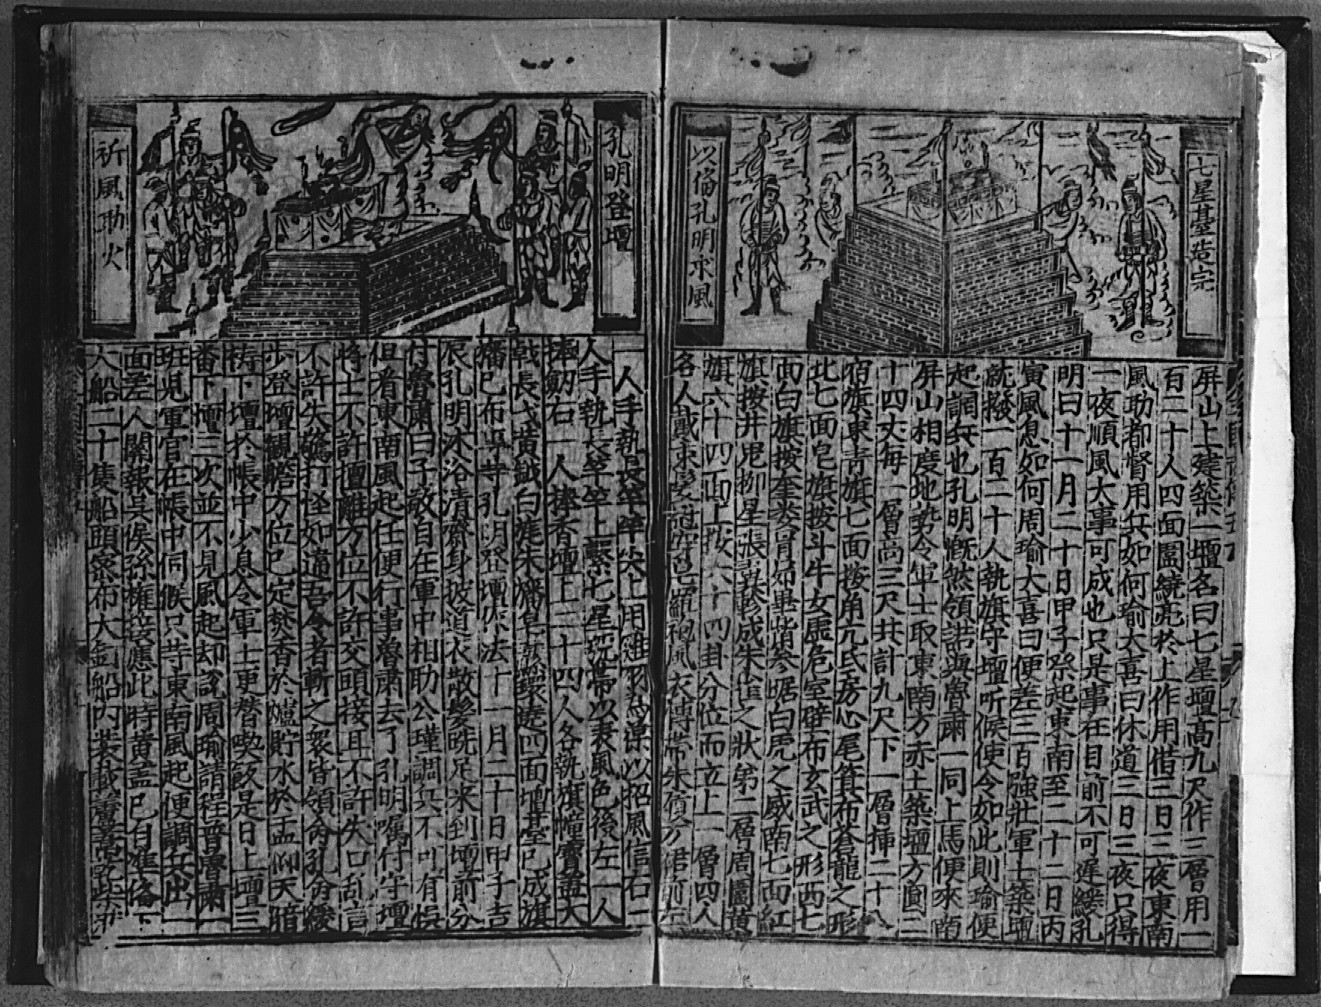 七星臺造完
以僃孔明求風
屏山上建築一壇名曰七星壇高九尺作三層用一
百二十人四面圍繞亮於上作用借三日三夜東南
風助都督用兵如何瑜大喜曰休道三日三夜只得
一夜順風大事可成也只是事在目前不可遲緩孔
明曰十一月二十日甲子祭起東南至二十二日丙
寅風息如何周瑜大喜曰便差三百強壯軍士築壇
就撥一百二十人執旗守壇听候使令如此則瑜便
起調兵也孔明慨然領諾與魯肅一同上馬便來南
屏山相度地勢令軍士取東南方赤土築壇方圓二
十四丈每一層高三尺共計九尺下一層挿二十八
宿旗東青旗七面按角亢氐房心尾箕布蒼龍之形
北七面皂旗按斗牛女虛危室壁布玄武之形西七
面白旗按奎婁胃昴畢觜參踞白虎之威南七面紅
旗按井鬼柳星張翼軫成朱雀之狀第二層周圍黃
旗六十四面按六十四卦分位而立上一層四人
各人戴束髮冠皂羅袍風衣博帶朱履方裙前左
孔明登壇
祈風助火
一人手執長竿竿尖上用雞羽為葆以招風信右一
人手執長竿竿上繫七星號帶以表風色後左一人
捧劒右一人捧香壇下二十四人各執旗幢寶蓋大
戟長戈黃鉞白旄朱旛皂纛環遶四面壇臺已成旗
旛已布專等孔明登壇作法十一月二十日甲子吉
辰孔明沐浴清齋身披道衣散髮跣足來到壇前分
付魯肅曰子敬自在軍中相助公瑾調兵不可有悞
但看東南風起任便行事魯肅去了孔明囑付守壇
將士不許擅離方位不許交頭接耳不許失口亂言
不許失驚打怪如違吾令者斬之衆皆領命孔明緩
步登壇觀瞻方位已定焚香於爐貯水於盂仰天暗
禱下壇於帳中少息令軍士更替喫飯是日上壇三
番下壇三次並不見風起却說周瑜請程普魯肅一
班兒軍官在帳中伺候只等東南風起便調兵出一
面差人關報吳侯孫權接應此時黃蓋已自準備下
火船二十隻船頭密布大釘船內裝載蘆葦乾柴